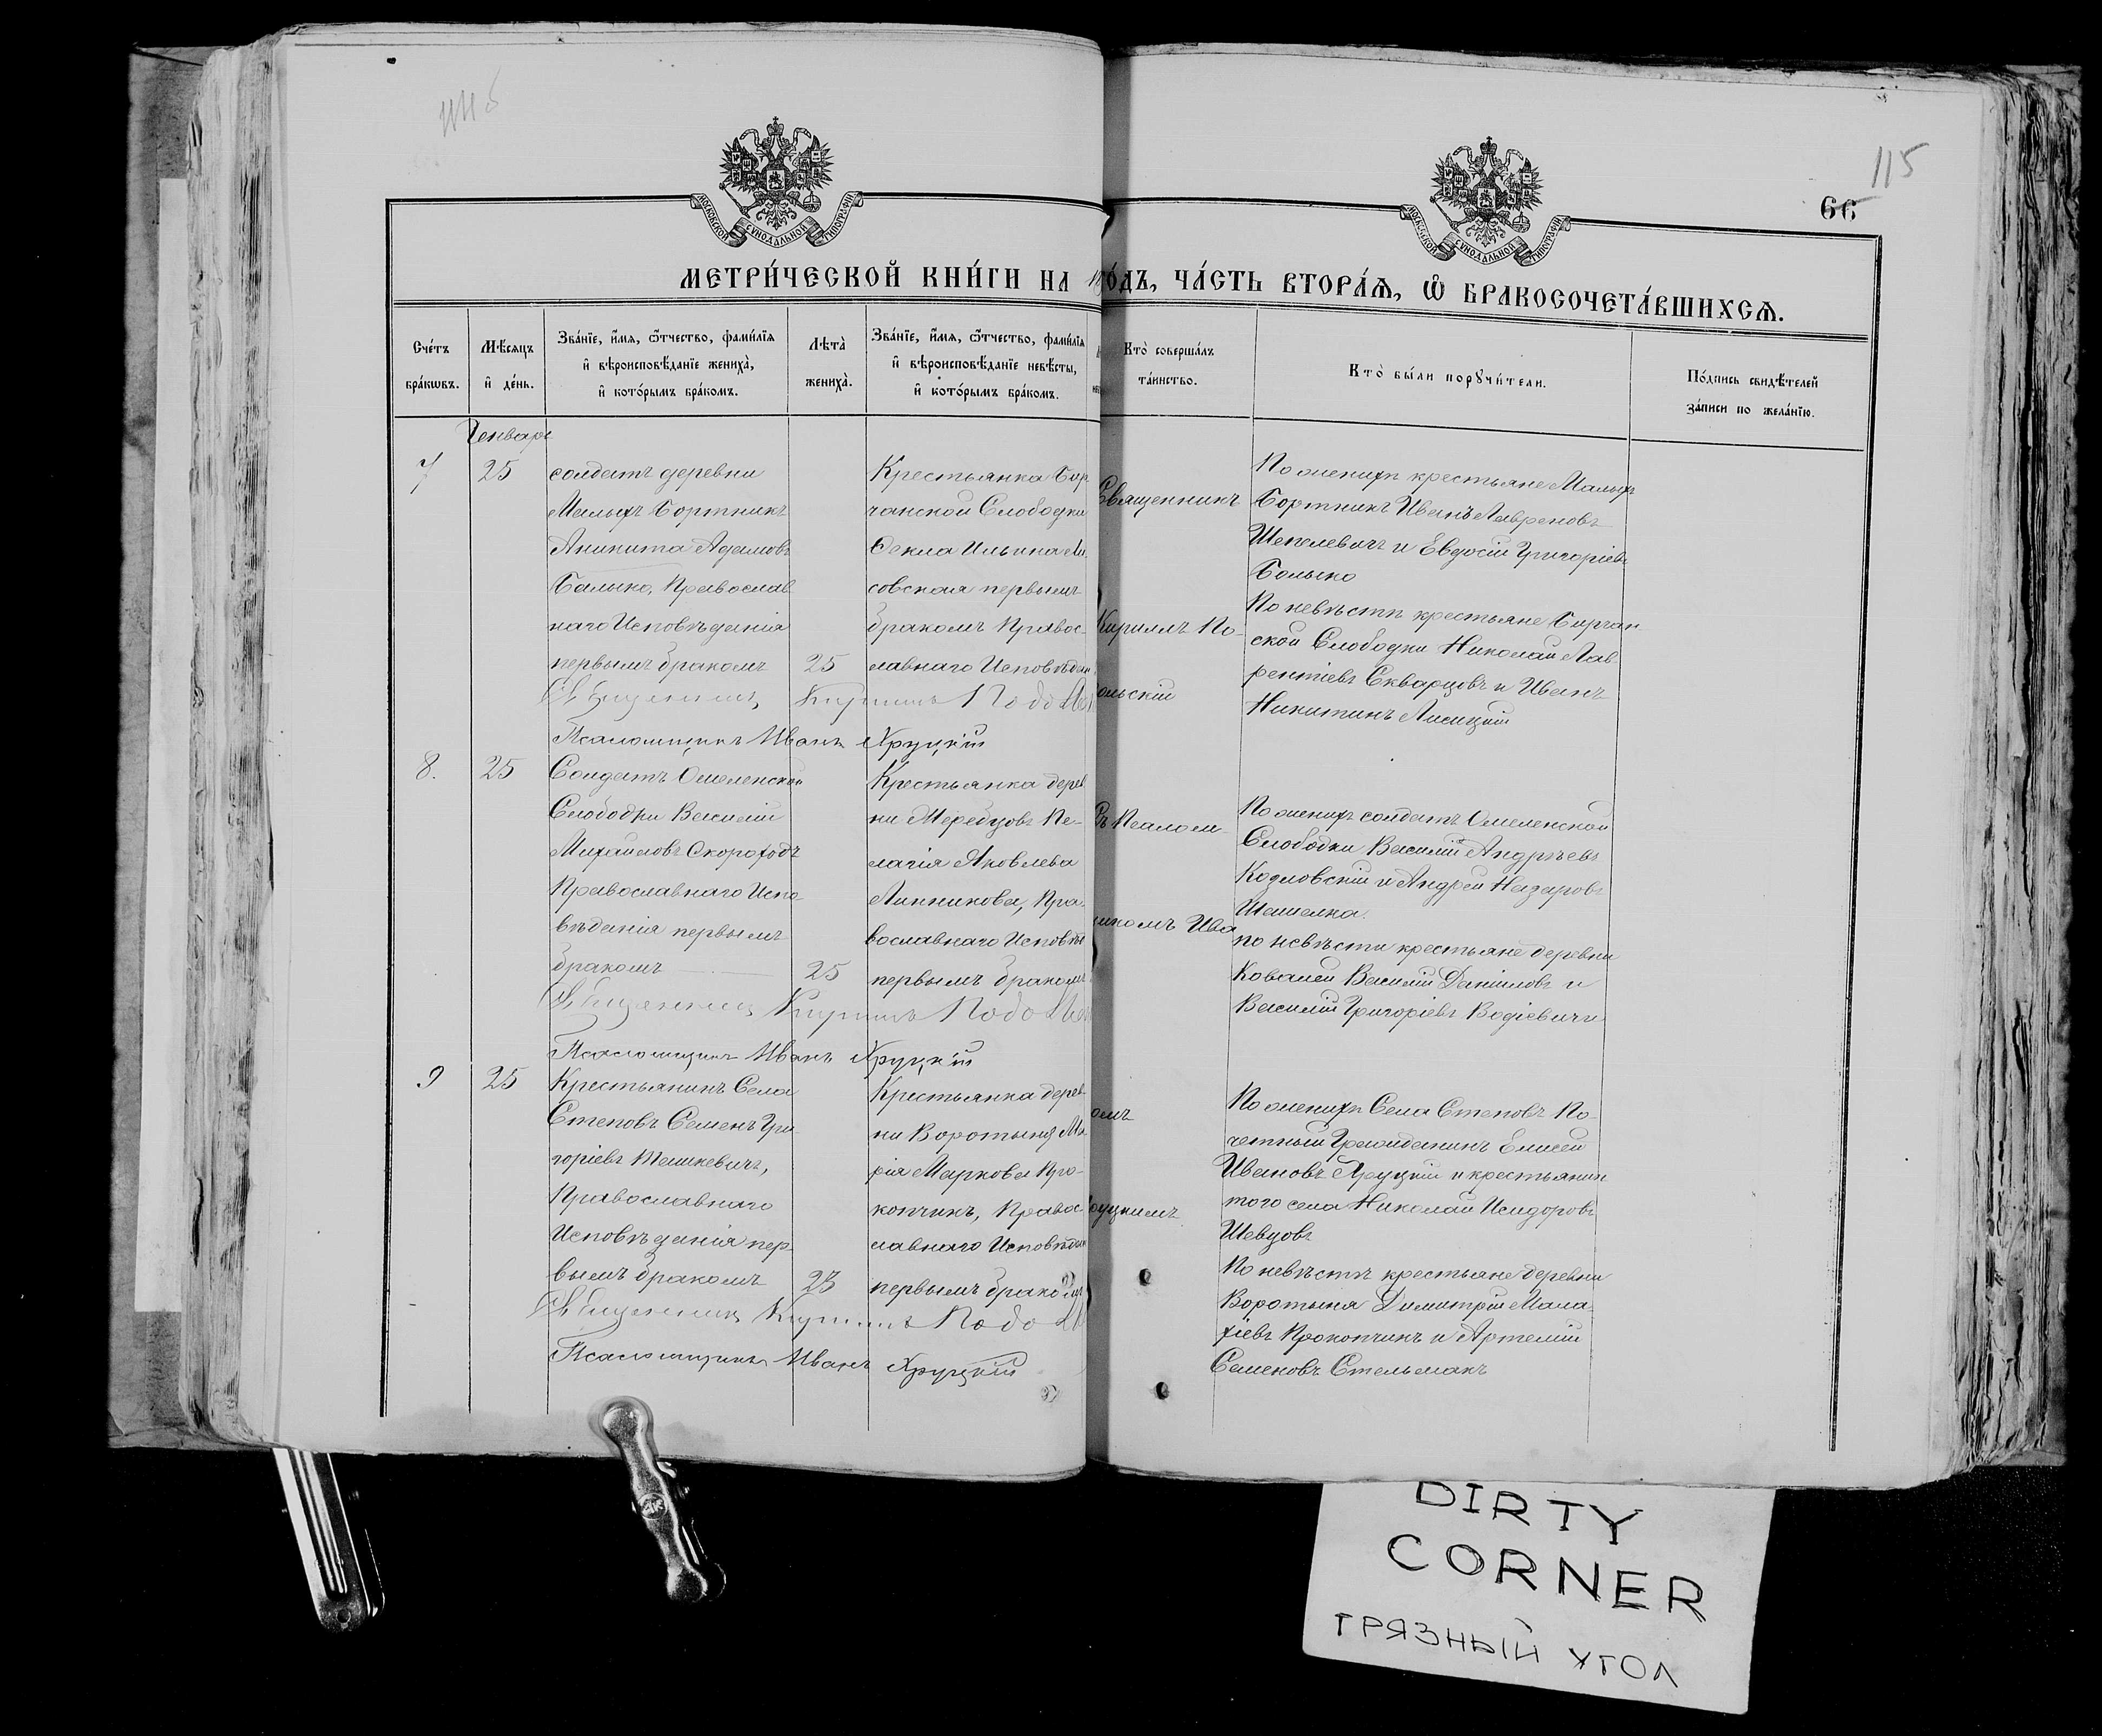 115
66
МОСКОВСКОЙ СѴНОДАЛЬНОЙ ТИПОГРАФІИ
МОСКОВСКОЙ СѴНОДАЛЬНОЙ ТИПОГРАФІИ
МЕТРИ́ЧЕСКОЙ КНИ́ГИ НА О́ДЪ, ЧА́СТЬ ВТОРА́Ѧ, Ѡ҆ БРАКОСОЧЕТА́ВШИХСѦ.
Сче́тъ
бра́кѡвъ.
Мѣ́сяцъ
и҆ де́нь.
Зва́нїе, и҆́мя, ѻ҆́тчество, фами́лїя
и҆ вѣроисповѣ́данїе жениха̀,
и҆ кото́рымъ бра́комъ.
Лѣта̀
жениха̀.
Зва́нїе, и҆́мя, ѻ҆́тчество, фами́лїя
и҆ вѣроисповѣ́данїе невѣ́сты,
и҆ кото́рымъ бра́комъ.
Кто̀ соверша́лъ
та́инство.
Кто̀ бы́ли порꙋчи́тели.
По́дпись свидѣ́телей
за́писи по жела́нїю.
Генваря
7
25
солдатъ деревни
Малыхъ Бортникъ
Аникита Адамовъ
Балыко, Православ
наго Исповѣданія
первымъ бракомъ
25
Крестьянка Бор
чанской Слободки
Фекла Ильина Ли
совская первымъ
бракомъ Правос-
лавнаго Исповѣдан
Священникъ
Кириллъ По-
ольскій
По женихѣ крестьяне Малыхъ
Бортникъ Иванъ Лавреновъ
Шепелевичъ и Евдосій Григоріевъ
Болыко
По невѣстѣ крестьяне Бирчан
ской Слободки Николай Лав
рентіевъ Скварцовъ и Иванъ
Никитинъ Лисицкій
Священникъ Кириллъ Подол
Псаломщикъ Иванъ Хруцкій
8.
25
Солдатъ Омеленской
Слободки Василій
Михайловъ Скороходъ
Православнаго Испо-
вѣданія первымъ
бракомъ
25
Крестьянка дерев
ни Меребцовъ Пе-
лагія Яковлева
Линникова, Пра-
вославнаго Исповѣ
первымъ бракомъ
Съ Псалом-
щикомъ Ива
По женихѣ солдатъ Омеленской
Слободки Василій Андреевъ
Козловскій и Андрей Назаровъ
Шашелка.
по невѣсти крестьяне деревни
Ковалей Василій Даниловъ и
Василій Григоріевъ Водіевичи
Священникъ Кириллъ Подол
Псаломщикъ Иванъ Хруцкій
9
25
Крестьянинъ Села
Степовъ Семенъ Гри
горіевъ Машкевичъ,
Православнаго
Исповѣданія пер-
вымъ бракомъ
23
Крестьянка дерев
ни Воротыня Ма
рія Маркова Про-
копчикъ, Правос-
лавнаго Исповѣдан
первымъ бракомъ
омъ
руцкимъ
По женихѣ Села Степовъ По-
четный Гражданинъ Елисей
Ивановъ Хруцкій и крестьянин
того села Николай Исидоровъ
Шевцовъ
По невѣстѣ крестьяне деревни
Воротыня Димитрій Мала-
хіевъ Прокопчикъ и Артемій
Семеновъ Стельмакъ
Священникъ Кириллъ Подол
Псаломщикъ Иванъ Хруцкій
DIRTY
CORNER
ГРЯЗНЫЙ УГОЛ